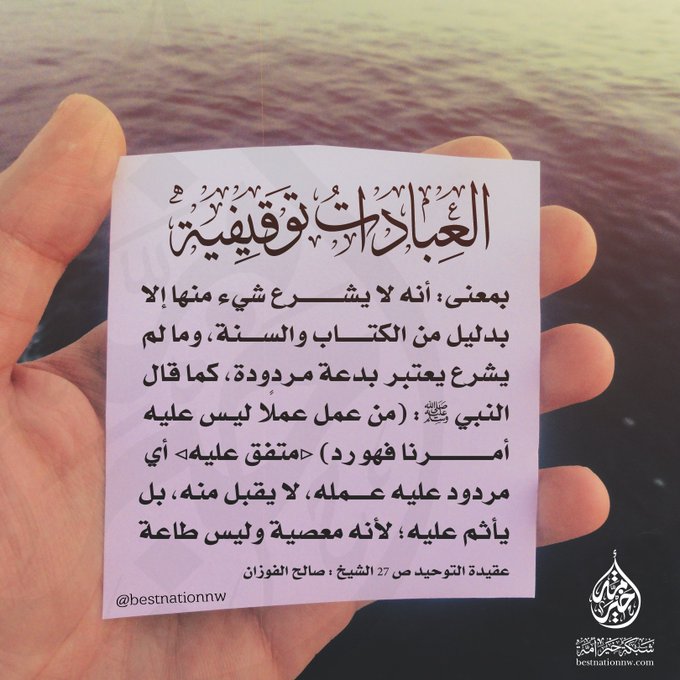 العِبادات توقيفية
بمعنى: أنه لا يشرع شيء منها إلا
بدليل من الكتاب والسنة، وما لم
يشرع يعتبر بدعة مردودة، كما قال
النبي ﷺ: (من عمل عملًا ليس عليه
أمرنا فهو رد) <متفق عليه> أي
مردود عليه عمله، لا يقبل منه، بل
يأثم عليه؛ لأنه معصية وليس طاعة
عقيدة التوحيد ص 27 الشيخ: صالح الفوزان
@bestnationnw
خير أمة
شبكة خير أمة
bestnationnw.com